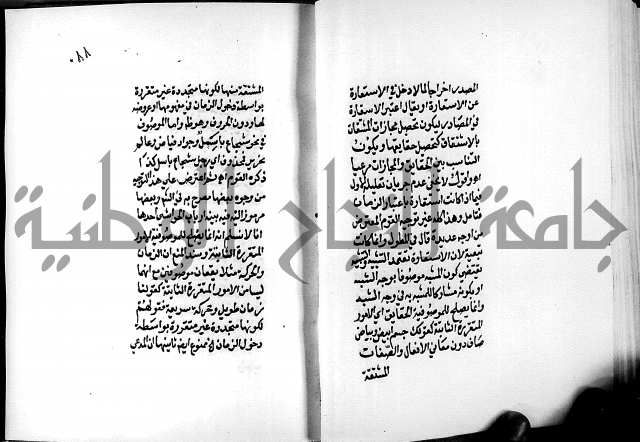 المصدر اخراجا لما لا دخل في الاستعارة
عن الاستعارة او يقال اعتبر الاستعارة
في المصادر ليكون تحصل مجازات المشتقات
بالاشتقاق كتحصل حقايقها ويكون
التناسب بين الحقايق والمجازات مرعيا
اه واقول لا يخفى عدم جريان تعليله الاول
فيما اذا كانت استعارة باعتبار الزمان
فتامل وهذا كله غير توجيه القوم المعترض
من اوجه عديدة قال في المطول وانما كانت
تبعية لان الاستعارة تعتمد التشبيه والتشبيه
يقتضي كون المشبه موصوفا بوجه الشبه
او بكونه مشاركا للمشبه به في وجه الشبه
وانما يصلح للموصوفية الحقايق اي الامور
المتقررة الثابتة كقولك جسم ابيض وبياض
صاف دون معاني الافعال والصفات
المشتقة
٠٨٨
المشتقة منها لكونها متجددة غير متقررة
بواسطة دخول الزمان في مفهومها او عروضه
لها ودون الحروف وهو ظ واما الموصوف
في نحو شجاع باسل وجواد فياض وعالم
نحرير فمحذوف اي رجل شجاع باسل كذا
ذكره القوم اه واعترض على هذا التوجيه
من وجوه بعضها مصرح به في الشر وبعضها
مرموز اليه فيه بينها ارباب الحواشي احدها
انا لا نسلم انه انما يصلح للموصوفية الامور
المتقررة الثابتة وسند المنع ان الزمان
والحركة مثلا يقعان موصوفين مع انهما
ليسا من الامور المتقررة الثابتة كقولنا
زمان طويل وحركة سريعة فقولهم
لكونها متجددة غير متقررة بواسطة
دخول الزمان اه ممنوع ايضا ثانيها ان المدعي
جامعة النجاح الوطنية